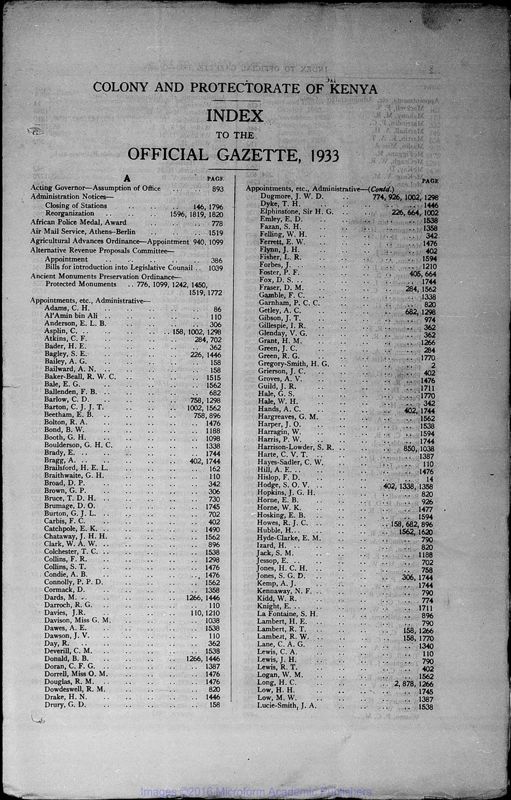 COLONY AND PROTECTORATE OF KENYA
INDEX
TO THE
OFFICIAL GAZETTE, 1933
A
PAGE
Acting Governor—Assumption of Office .. .. 893
Administration Notices—
Closing of Stations .. .. .. 146, 1796
Reorganization .. .. 1596, 1819, 1820
African Police Medal, Award .. .. .. 778
Air Mail Service, Athens–Berlin .. .. 1519
Agricultural Advances Ordinance—Appointment 940, 1099
Alternative Revenue Proposals Committee—
Appointment .. .. .. .. 386
Bills for introduction into Legislative Counail .. 1039
Ancient Monuments Preservation Ordinance—
Protected Monuments .. 776, 1099, 1242, 1450,
1519, 1772
Appointments, etc., Administrative—
Adams, C. H. .. .. .. .. 86
Al'Amin bin Ali .. .. .. .. 110
Anderson, E. L. B. .. .. .. .. 306
Asplin, C. .. .. .. .. 158, 1002, 1298
Atkins, C. F. .. .. .. .. 284, 702
Bader, H. E. .. .. .. .. 362
Bagley, S. E. .. .. .. .. 226, 1446
Bailey, A. G. .. .. .. .. 158
Bailward, A. N. .. .. .. .. 158
Baker-Beall, R. W. C. .. .. .. .. 1515
Bale, E. G. .. .. .. .. 1562
Ballenden, F. B. .. .. .. .. 682
Barlow, C. D. .. .. .. .. 758, 1298
Barton, C. J. J. T. .. .. .. .. 1002, 1562
Beetham, E. B. .. .. .. .. 758, 896
Bolton, R. A. .. .. .. .. 1476
Bond, B. W. .. .. .. .. 1188
Booth, G. H. .. .. .. .. 1098
Boulderson, G. H. C. .. .. .. .. 1338
Brady, E. .. .. .. .. 1744
Bragg, A. .. .. .. .. 402, 1744
Brailsford, H. E. L. .. .. .. .. 162
Braithwaite, G. H. .. .. .. .. 110
Broad, D. P. .. .. .. .. 342
Brown, G. P. .. .. .. .. 306
Bruce, T. D. H. .. .. .. .. 730
Brumage, D. O. .. .. .. .. 1745
Burton, G. J. L. .. .. .. .. 702
Carbis, F. C. .. .. .. .. 402
Catchpole, E. K. .. .. .. .. 1490
Chataway, J. H. H. .. .. .. .. 1562
Clark, W. A. W. .. .. .. .. 896
Colchester, T. C. .. .. .. .. 1538
Collins, F. R. .. .. .. .. 1298
Collins, S. T. .. .. .. .. 1476
Condie, A. B. .. .. .. .. 1476
Connolly, P. P. D. .. .. .. .. 1562
Cormack, D. .. .. .. .. 1358
Dards, M. .. .. .. .. 1266, 1446
Darroch, R. G. .. .. .. .. 110
Davies, J.R. .. .. .. .. 110, 1210
Davison, Miss G. M. .. .. .. .. 1038
Dawes, A. E. .. .. .. .. 1538
Dawson, J. V. .. .. .. .. 110
Day, R. .. .. .. .. 362
Deverill, C. M. .. .. .. .. 1538
Donald, B. B. .. .. .. .. 1266, 1446
Doran, C. F. G. .. .. .. .. 1387
Dorrell, Miss O. M. .. .. .. .. 1476
Douglas, R. M. .. .. .. .. 1476
Dowdeswell, R. M. .. .. .. .. 820
Drake, H. N. .. .. .. .. 1446
Drury, G. D. .. .. .. .. 158
PAGE
Appointments, etc., Administrative—(Contd.)
Dugmore, J. W. D. .. 774, 926, 1002, 1298
Dyke, T. H. .. .. .. .. 1446
Elphinstone, Sir H. G. .. .. 226, 664, 1002
Emley, E. D. .. .. .. .. 1538
Fazan, S. H. .. .. .. .. 1358
Felling, W. H. .. .. .. .. 342
Ferrett, E. W. .. .. .. .. 1476
Flynn, J. H. .. .. .. .. 402
Fisher, L. R. .. .. .. .. 1594
Forbes, J. .. .. .. .. 1210
Foster, P. F. .. .. .. .. 406, 664
Fox, D. S. .. .. .. .. 1744
Fraser, D. M. .. .. .. .. 284, 1562
Gamble, F. C. .. .. .. .. 1338
Garnham, P. C. C. .. .. .. .. 820
Getley, A. C. .. .. .. .. 682, 1298
Gibson, J. T. .. .. .. .. 974
Gillespie, I. R. .. .. .. .. 362
Glenday, V. G. .. .. .. .. 362
Grant, H. M. .. .. .. .. 1266
Green, J. C. .. .. .. .. 284
Green, R. G. .. .. .. .. 1770
Gregory-Smith, H. G. .. .. .. .. 2
Grierson, J. C. .. .. .. .. 402
Groves, A. V. .. .. .. .. 1476
Guild, J. R. .. .. .. .. 1711
Hale, G. S. .. .. .. .. 1770
Hale, W. H. .. .. .. .. 342
Hands, A. C. .. .. .. .. 402, 1744
Hargreaves, G. M. .. .. .. .. 1562
Harper, J. O. .. .. .. .. 1538
Harragin, W. .. .. .. .. 1594
Harris, P. W. .. .. .. .. 1744
Harrison-Lowder, S. R. .. .. .. 850, 1038
Harte, C. V. T. .. .. .. .. 1387
Hayes-Sadler, C. W. .. .. .. .. 110
Hill, A. E. .. .. .. .. 1476
Hislop, F. D. .. .. .. .. 14
Hodge, S. O. V. .. .. .. 402, 1338, 1358
Hopkins, J. G. H. .. .. .. .. 820
Horne, E. B. .. .. .. .. 926
Horne, W. K. .. .. .. .. 1477
Hosking, E. B. .. .. .. .. 1594
Howes, R. J. C. .. .. .. 158, 682, 896
Hubble, H. .. .. .. .. 1562, 1620
Hyde-Clarke, E. M. .. .. .. .. 790
Izard, H. .. .. .. .. 820
Jack, S. M. .. .. .. .. 1188
Jessop, E. .. .. .. .. 702
Jones, H. C. H. .. .. .. .. 758
Jones, S. G. D. .. .. .. .. 306, 1744
Kemp, A. J. .. .. .. .. 1744
Kennaway, N. F. .. .. .. .. 790
Kidd, W. R. .. .. .. .. 774
Knight, E. .. .. .. .. 1711
La Fontaine, S. H. .. .. .. .. 896
Lambert, H. E. .. .. .. .. 790
Lambert, R. T. .. .. .. .. 158, 1266
Lambert, R. W. .. .. .. .. 158, 1770
Lane, C. A. G. .. .. .. .. 1340
Lewis, C. A. .. .. .. .. 110
Lewis, J. H. .. .. .. .. 790
Lewis, R. T. .. .. .. .. 402
Logan, W. M. .. .. .. .. 1562
Long, H. C. .. .. .. .. 2, 878, 1266
Low, H. H. .. .. .. .. 1745
Low, M. W. .. .. .. .. 1387
Lucie-Smith, J. A. .. .. .. .. 1538
Images ©2016 Microform Academic Publishers